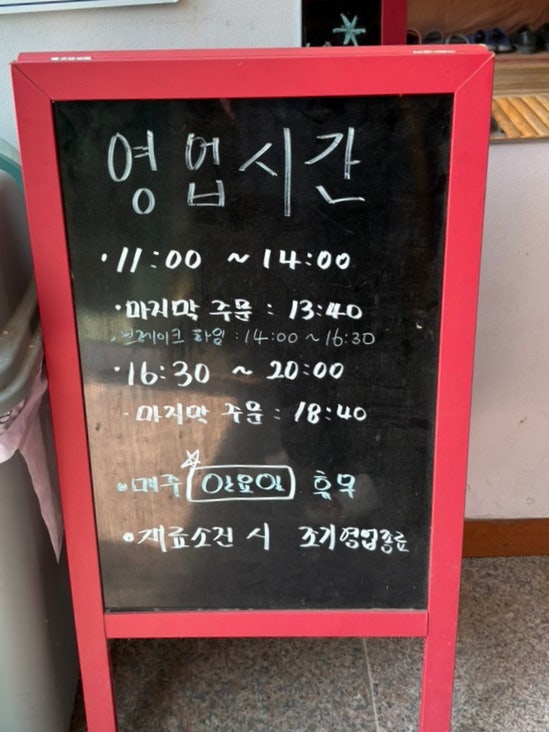 영업시간
·11:00 ~ 14:00
·마지막 주문 : 13:40
·브레이크 타임 : 14:00 ~ 16:30
·16:30 ~ 20:00
·마지막 주문 : 18:40
·매주 휴무
·재료소진 시 조기영업종료